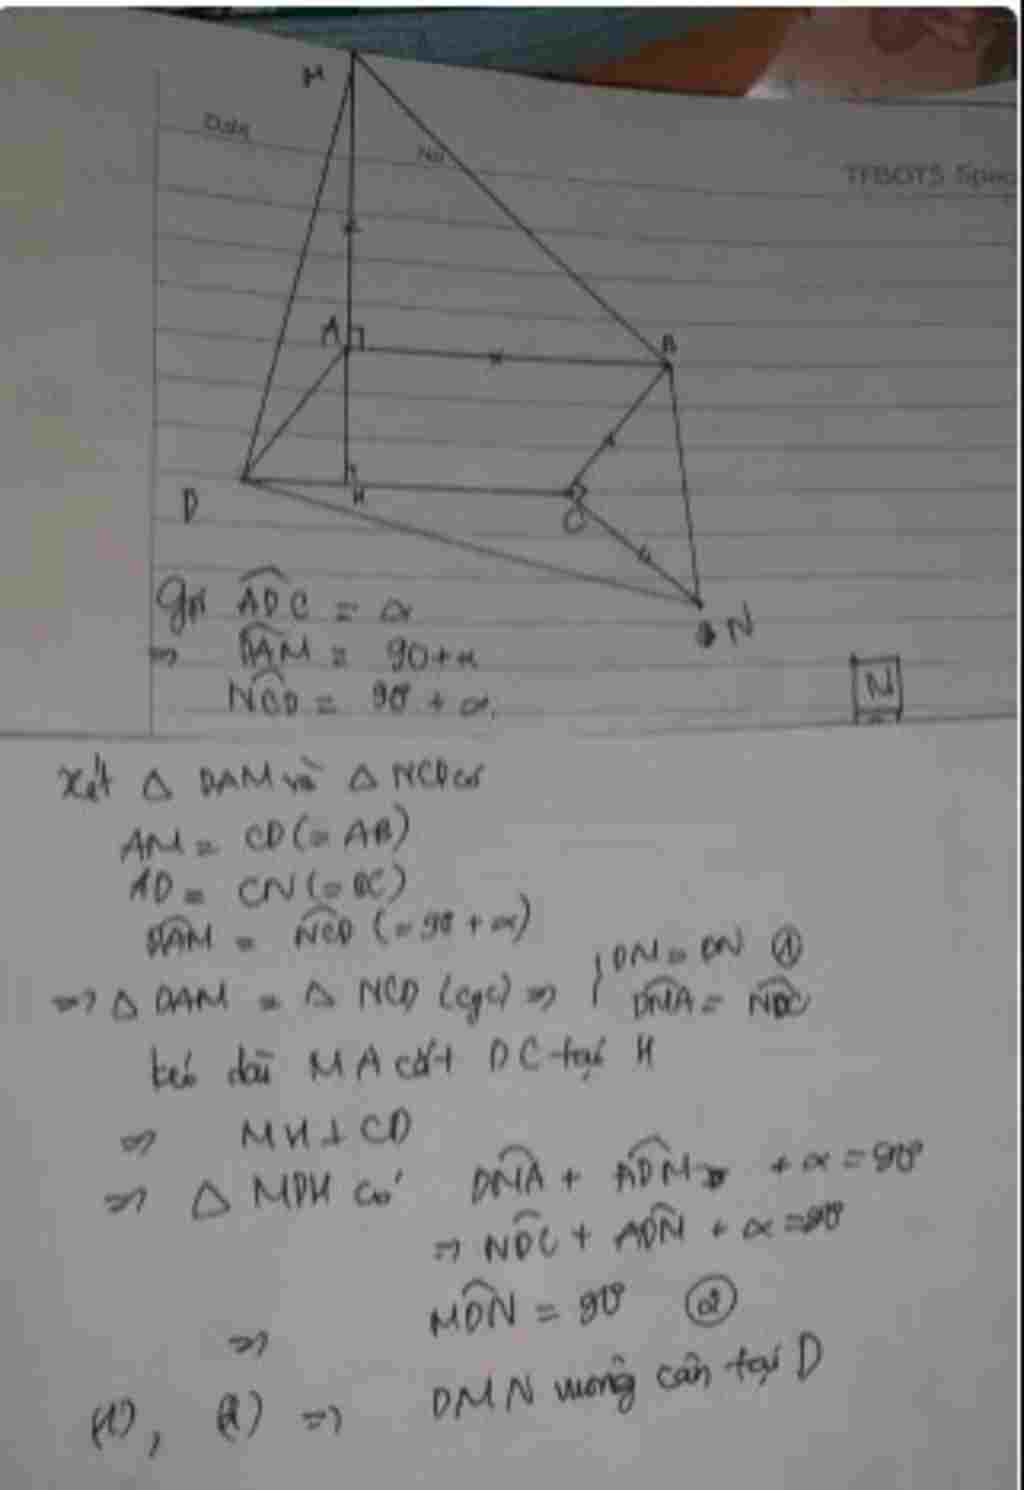 M
Date
No
TFBOYS Spec
A
B
D
H
C
N
Gọi ADC = α
⇒ DAM = 90+α
NCD = 90° + α.
N
xét △ DAM và △ NCD có
AM = CD (= AB)
AD = CN (= BC)
DAM = NCD (= 90 + α)
⇒ △ DAM = △ NCD (cgc) ⇒ { DM = DN ①
DMA = NDC
kéo dài MA cắt DC tại H
⇒ MH ⊥ CD
⇒ △ MDH có DMA + ADM + α = 90°
⇒ NDC + ADM + α = 90°
⇒ MDN = 90° ②
(1), (2) ⇒ DMN vuông cân tại D